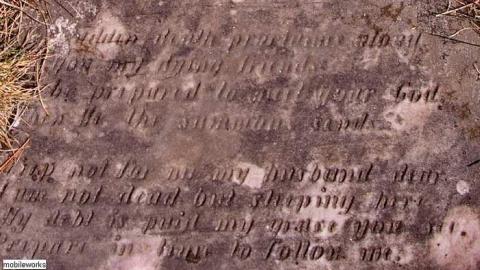 death proclaims aloud
you my dying friends
be prepared to meet your God
he the summons sends
not for me my husband dear
I am not dead but sleeping here
My debt is paid my grave you see
Prepare in time to follow me.
mobileworks